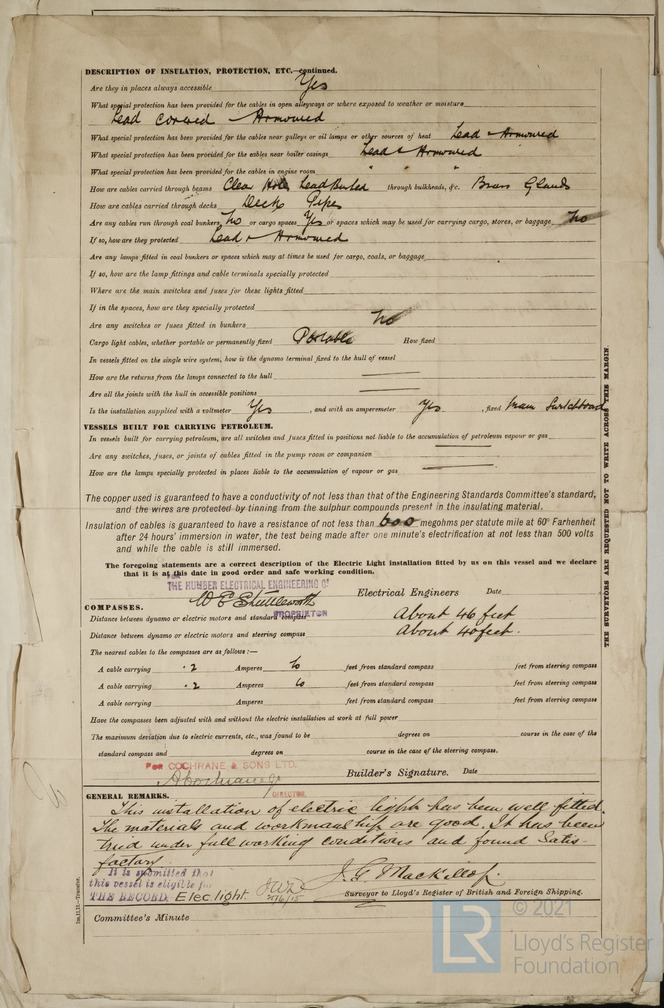 DESCRIPTION OF INSULATION, PROTECTION, ETC.—continued.
Are they in places always accessible Yes
What special protection has been provided for the cables in open alleyways or where exposed to weather or moisture
Lead covered & Armoured
What special protection has been provided for the cables near galleys or oil lamps or other sources of heat Lead & Armoured
What special protection has been provided for the cables near boiler casings Lead & Armoured
What special protection has been provided for the cables in engine room " " "
How are cables carried through beams Clear Holes Lead Bushed through bulkheads, &c. Brass Glands
How are cables carried through decks Deck Pipes
Are any cables run through coal bunkers No or cargo spaces Yes or spaces which may be used for carrying cargo, stores, or baggage No
If so, how are they protected Lead & Armoured
Are any lamps fitted in coal bunkers or spaces which may at times be used for cargo, coals, or baggage
If so, how are the lamp fittings and cable terminals specially protected
Where are the main switches and fuses for these lights fitted
If in the spaces, how are they specially protected
Are any switches or fuses fitted in bunkers No
Cargo light cables, whether portable or permanently fixed Portable How fixed
In vessels fitted on the single wire system, how is the dynamo terminal fixed to the hull of vessel
How are the returns from the lamps connected to the hull
Are all the joints with the hull in accessible positions
Is the installation supplied with a voltmeter Yes, and with an amperemeter Yes, fixed Main Switchboard
VESSELS BUILT FOR CARRYING PETROLEUM.
In vessels built for carrying petroleum, are all switches and fuses fitted in positions not liable to the accumulation of petroleum vapour or gas
Are any switches, fuses, or joints of cables fitted in the pump room or companion
How are the lamps specially protected in places liable to the accumulation of vapour or gas
The copper used is guaranteed to have a conductivity of not less than that of the Engineering Standards Committee's standard,
and the wires are protected by tinning from the sulphur compounds present in the insulating material.
Insulation of cables is guaranteed to have a resistance of not less than 600 megohms per statute mile at 60° Farhenheit
after 24 hours' immersion in water, the test being made after one minute's electrification at not less than 500 volts
and while the cable is still immersed.
The foregoing statements are a correct description of the Electric Light installation fitted by us on this vessel and we declare
that it is at this date in good order and safe working condition.
FOR
THE HUMBER ELECTRICAL ENGINEERING Co
W E Shuttleworth Electrical Engineers Date
PROPRIETOR
COMPASSES.
Distance between dynamo or electric motors and standard compass About 46 feet
Distance between dynamo or electric motors and steering compass About 40 feet.
The nearest cables to the compasses are as follows:—
A cable carrying .2 Amperes 10 feet from standard compass feet from steering compass
A cable carrying .2 Amperes 6 feet from standard compass feet from steering compass
A cable carrying Amperes feet from standard compass feet from steering compass
Have the compasses been adjusted with and without the electric installation at work at full power
The maximum deviation due to electric currents, etc., was found to be degrees on course in the case of the
standard compass and degrees on course in the case of the steering compass.
FOR COCHRANE & SONS LTD.
A Cochrane Builder's Signature. Date
DIRECTOR.
GENERAL REMARKS.
This installation of electric light has been well fitted.
The materials and workmanship are good. It has been
tried under full working conditions and found Satis-
factory
It is submitted that
this vessel is eligible for
THE RECORD. Elec. light.
J. G. Mackillop.
Surveyor to Lloyd's Register of British and Foreign Shipping.
Committee's Minute
THE SURVEYORS ARE REQUESTED NOT TO WRITE ACROSS THIS MARGIN.
© 2021
LR
Lloyd's Register
Foundation